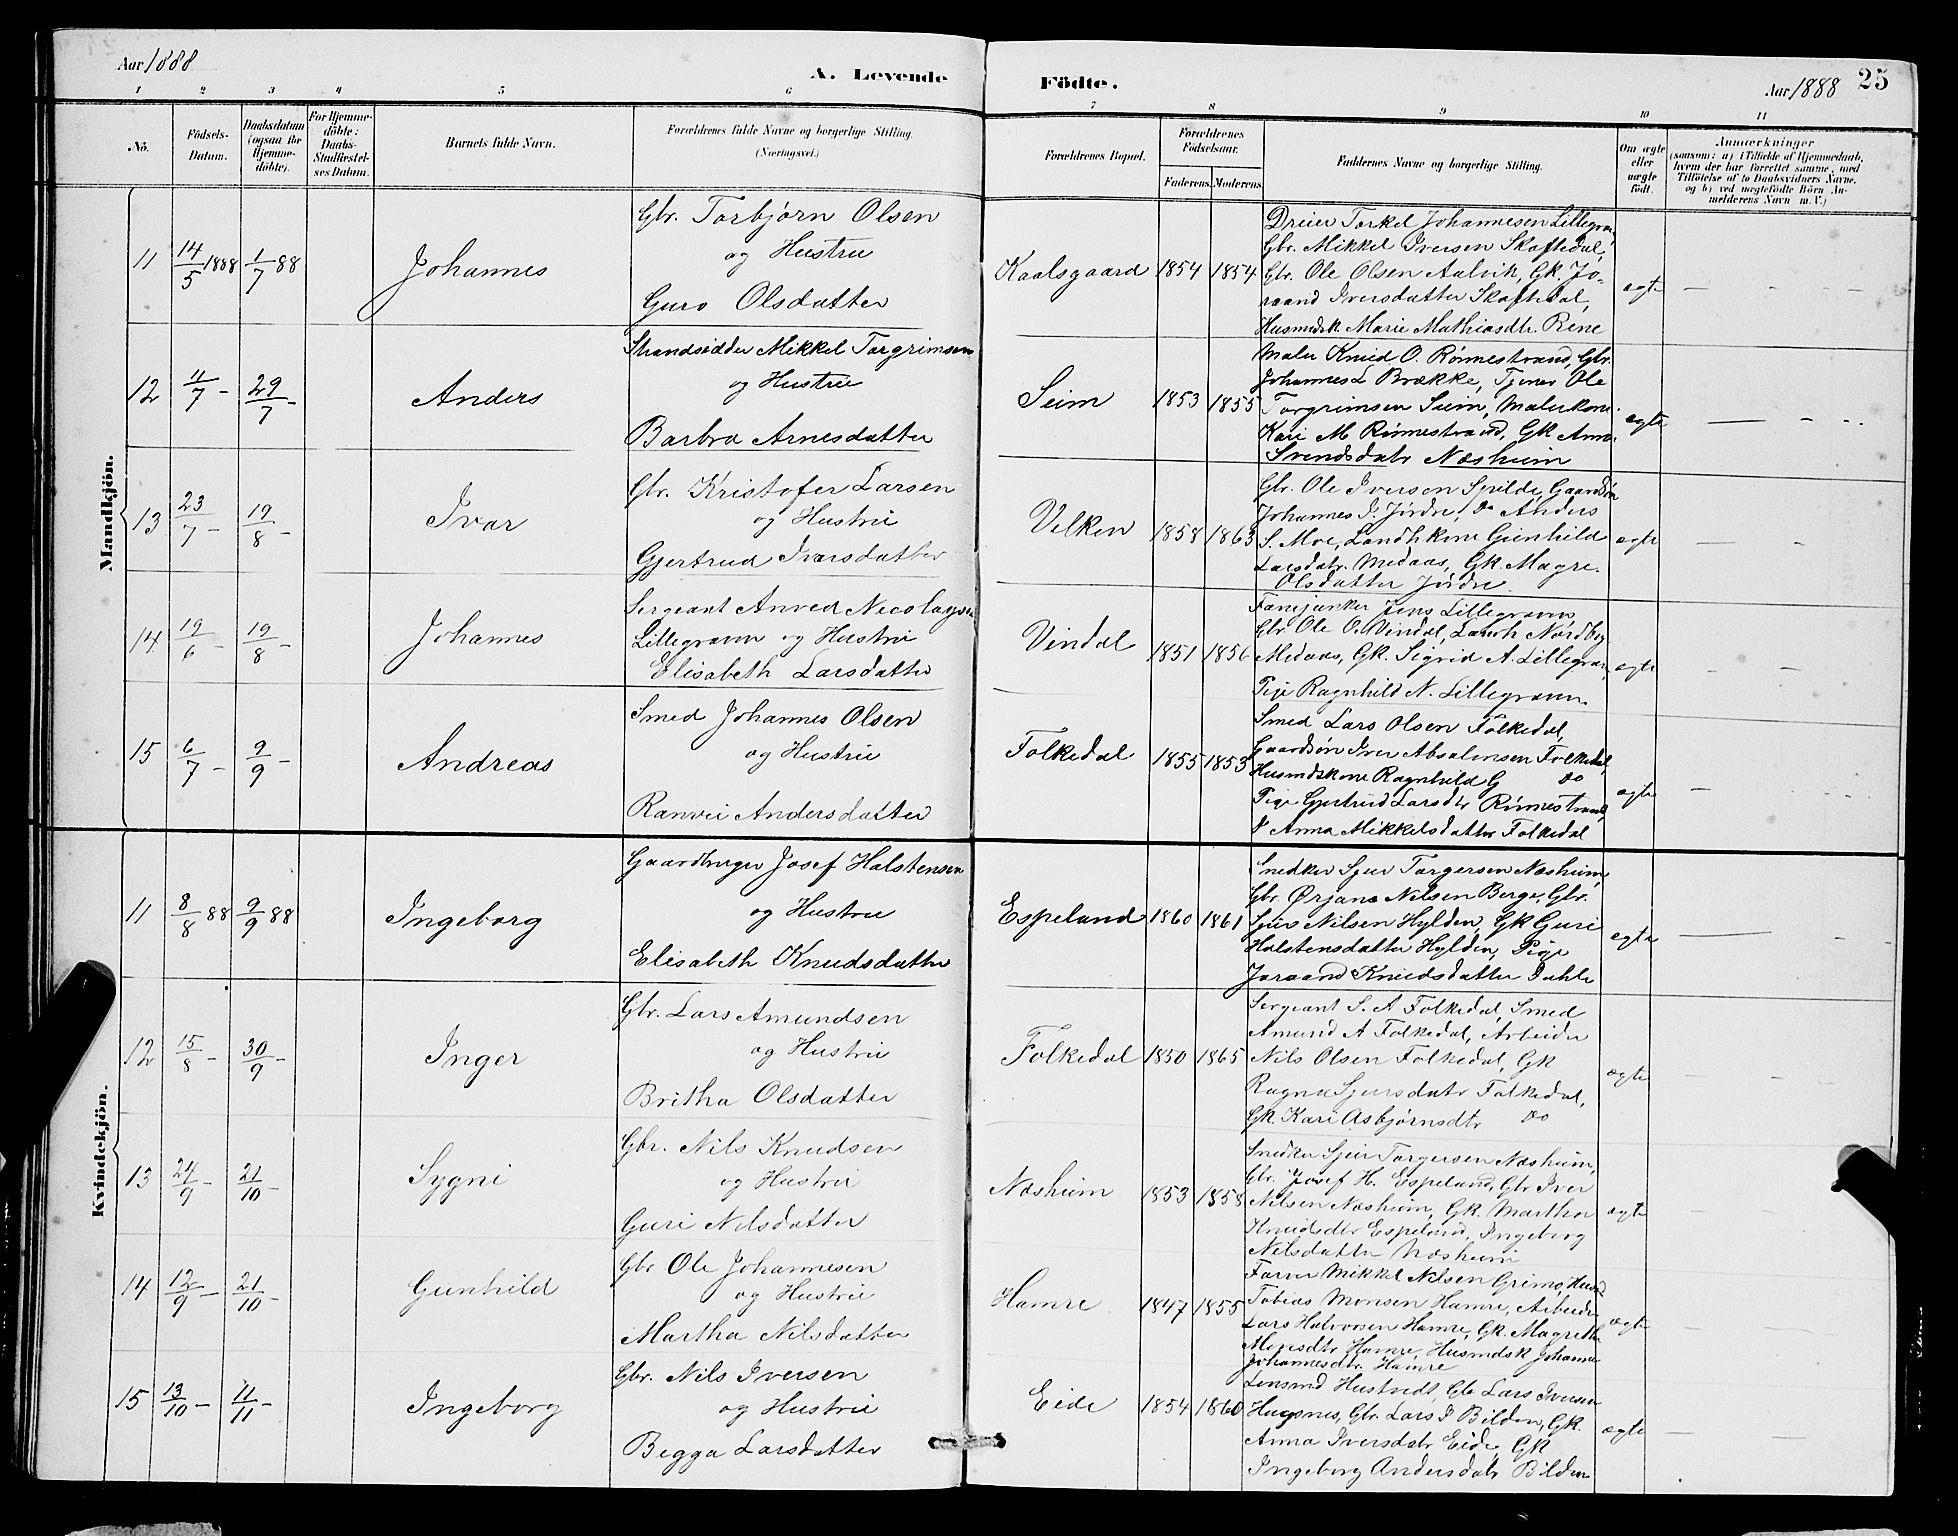 Aar 1888
A. Levende
Födte.
Aar 1888 25
1 2 3 4 5 6 7 8 9 10 11
No.
Födsels-
Datum.
Daabsdatum
(ogsaa for
Hjemme-
döbte).
For Hjemme-
döbte:
Daabs-
Stadfæstel-
ses Datum.
Barnets fulde Navn.
Forældrenes fulde Navne og borgerlige Stilling.
(Næringsvei.)
Forældrenes Bopæl.
Forældrenes
Födselsaar.
Faderens. Moderens.
Faddernes Navne og borgerlige Stilling.
Om ægte
eller
uægte
födt.
Anmærkninger
(saasom: a) i Tilfælde af Hjemmedaab,
hvem der har forrettet samme, med
Tilföielse af to Daabsvidners Navne,
og b) ved uægtefödte Börn An-
melderens Navn m. V.)
Mandkjön.
11 14/5 1888 1/7 88 Johannes
Gbr. Torbjørn Olsen
og Hustru
Guro Olsdatter
Kaalsgaard 1854 1854
Dreier Torkel Johannesen Lillegravn,
Gbr. Mikkel Iversen Skaftedal,
Gbr. Ole Olsen Aalvik, Gk. Jo-
raand Iversdatter Skaftedal,
Husmdsk Marie Mathiasdtr. Rene
ægte
12 11/7 - 29/7 - Anders
Strandsidder Mikkel Torgrimsen
og Hustru
Barbra Arnesdatter
Seim 1853 1855
Maler Knud O. Rönnestrand, Gbr.
Johannes L Brække, Tjener Ole
Torgrimsen Seim, Malerkone
Kari M Rönnestrand, Gk Anna
Svendsdatr Næsheim
ægte
13 23/7 - 19/8 - Ivar
Gbr. Kristofer Larsen
og Hustru
Gjertrud Ivarsdatter
Velken 1858 1863
Gbr. Ole Iversen Spilde, Gaardsön
Johannes I. Jördre, Do Anders
S. Moe, Landhkone Gunhild
Larsdatr. Medaas, Gk. Magre.
Olsdatter Jördre.
ægte
14 19/6 - 19/8 - Johannes
Sergeant Anved Nicolaysen
Lillegravn og Hustru
Elisabeth Larsdatter
Vindal 1851 1856
Fanejunker Jens Lillegravn,
Gbr Ole O. Vindal, Landh Nordby
Medaas, Gk. Sigrid A. Lillegravn,
Pige Ragnhild N. Lillegravn.
ægte
15 6/7 - 9/9 - Andreas
Smed Johannes Olsen
og Hustru
Ranvei Andersdatter
Folkedal 1855 1853
Smed Lars Olsen Folkedal,
Gaardsön Iver Absalonsen Folkedal,
Husmdskone Ragnhild G Do
Pige Gjertrud Larsdtr Rönnestrand,
Anna Mikkelsdatter Folkedal
ægte
Kvindekjön.
11 8/8 88 9/9 88 Ingeborg
Gaardbruger Josef Halstensen
og Hustru
Elisabeth Knudsdatter
Espeland 1860 1861
Snedker Sjur Torgersen Næsheim,
Gbr. Ørjans Nilsen Berge, Gbr.
Sjur Nilsen Hylden, Gk Guri
Halstensdatter Hylden, Pige
Joraand Knudsdatter Dahle
ægte
12 15/8 - 30/9 - Inger
Gbr. Lars Amundsen
og Hustru
Britha Olsdatter
Folkedal 1850 1865
Sergeant S. A Folkedal, Smed
Amund A Folkedal, Arbeider
Nils Olsen Folkedal, Gk
Ragna Sjursdatr Folkedal,
Gk. Kari Asbjørnsdtr Do
ægte
13 24/9 - 21/10 - Sygni
Gbr. Nils Knudsen
og Hustru
Guri Nilsdatter
Næsheim 1853 1858
Snedker Sjur Torgersen Næsheim,
Gbr. Josef H. Espeland, Gbr Iver
Nilsen Næsheim, Gk. Martha
Knudsdtr Espeland, Ingeborg
Nilsdatter Næsheim
ægte
14 12/9 - 21/10 - Gunhild
Gbr Ole Johannesen
og Hustru
Martha Nilsdatter
Hamre 1847 1855
Farver Mikkel Nilsen Grimo, Husmd
Tobias Monsen Hamre, Arbeider
Lars Halvorsen Hamre, Gk. Magrethe
Monsdtr Hamre, Husmdsk Johanna
Johannesdtr. Hamre
ægte
15 13/10 - 11/11 - Ingeborg
Gbr. Nils Iversen
og Hustru
Begga Larsdatter
Eide 1854 1860
Lensmd Hustvedt, Gb Lars Iversen
Hugsnes, Gbr. Lars I Bilden, Gk.
Anna Iversdatr Eide, Gk
Ingeborg Andersdatr Bilden
ægte